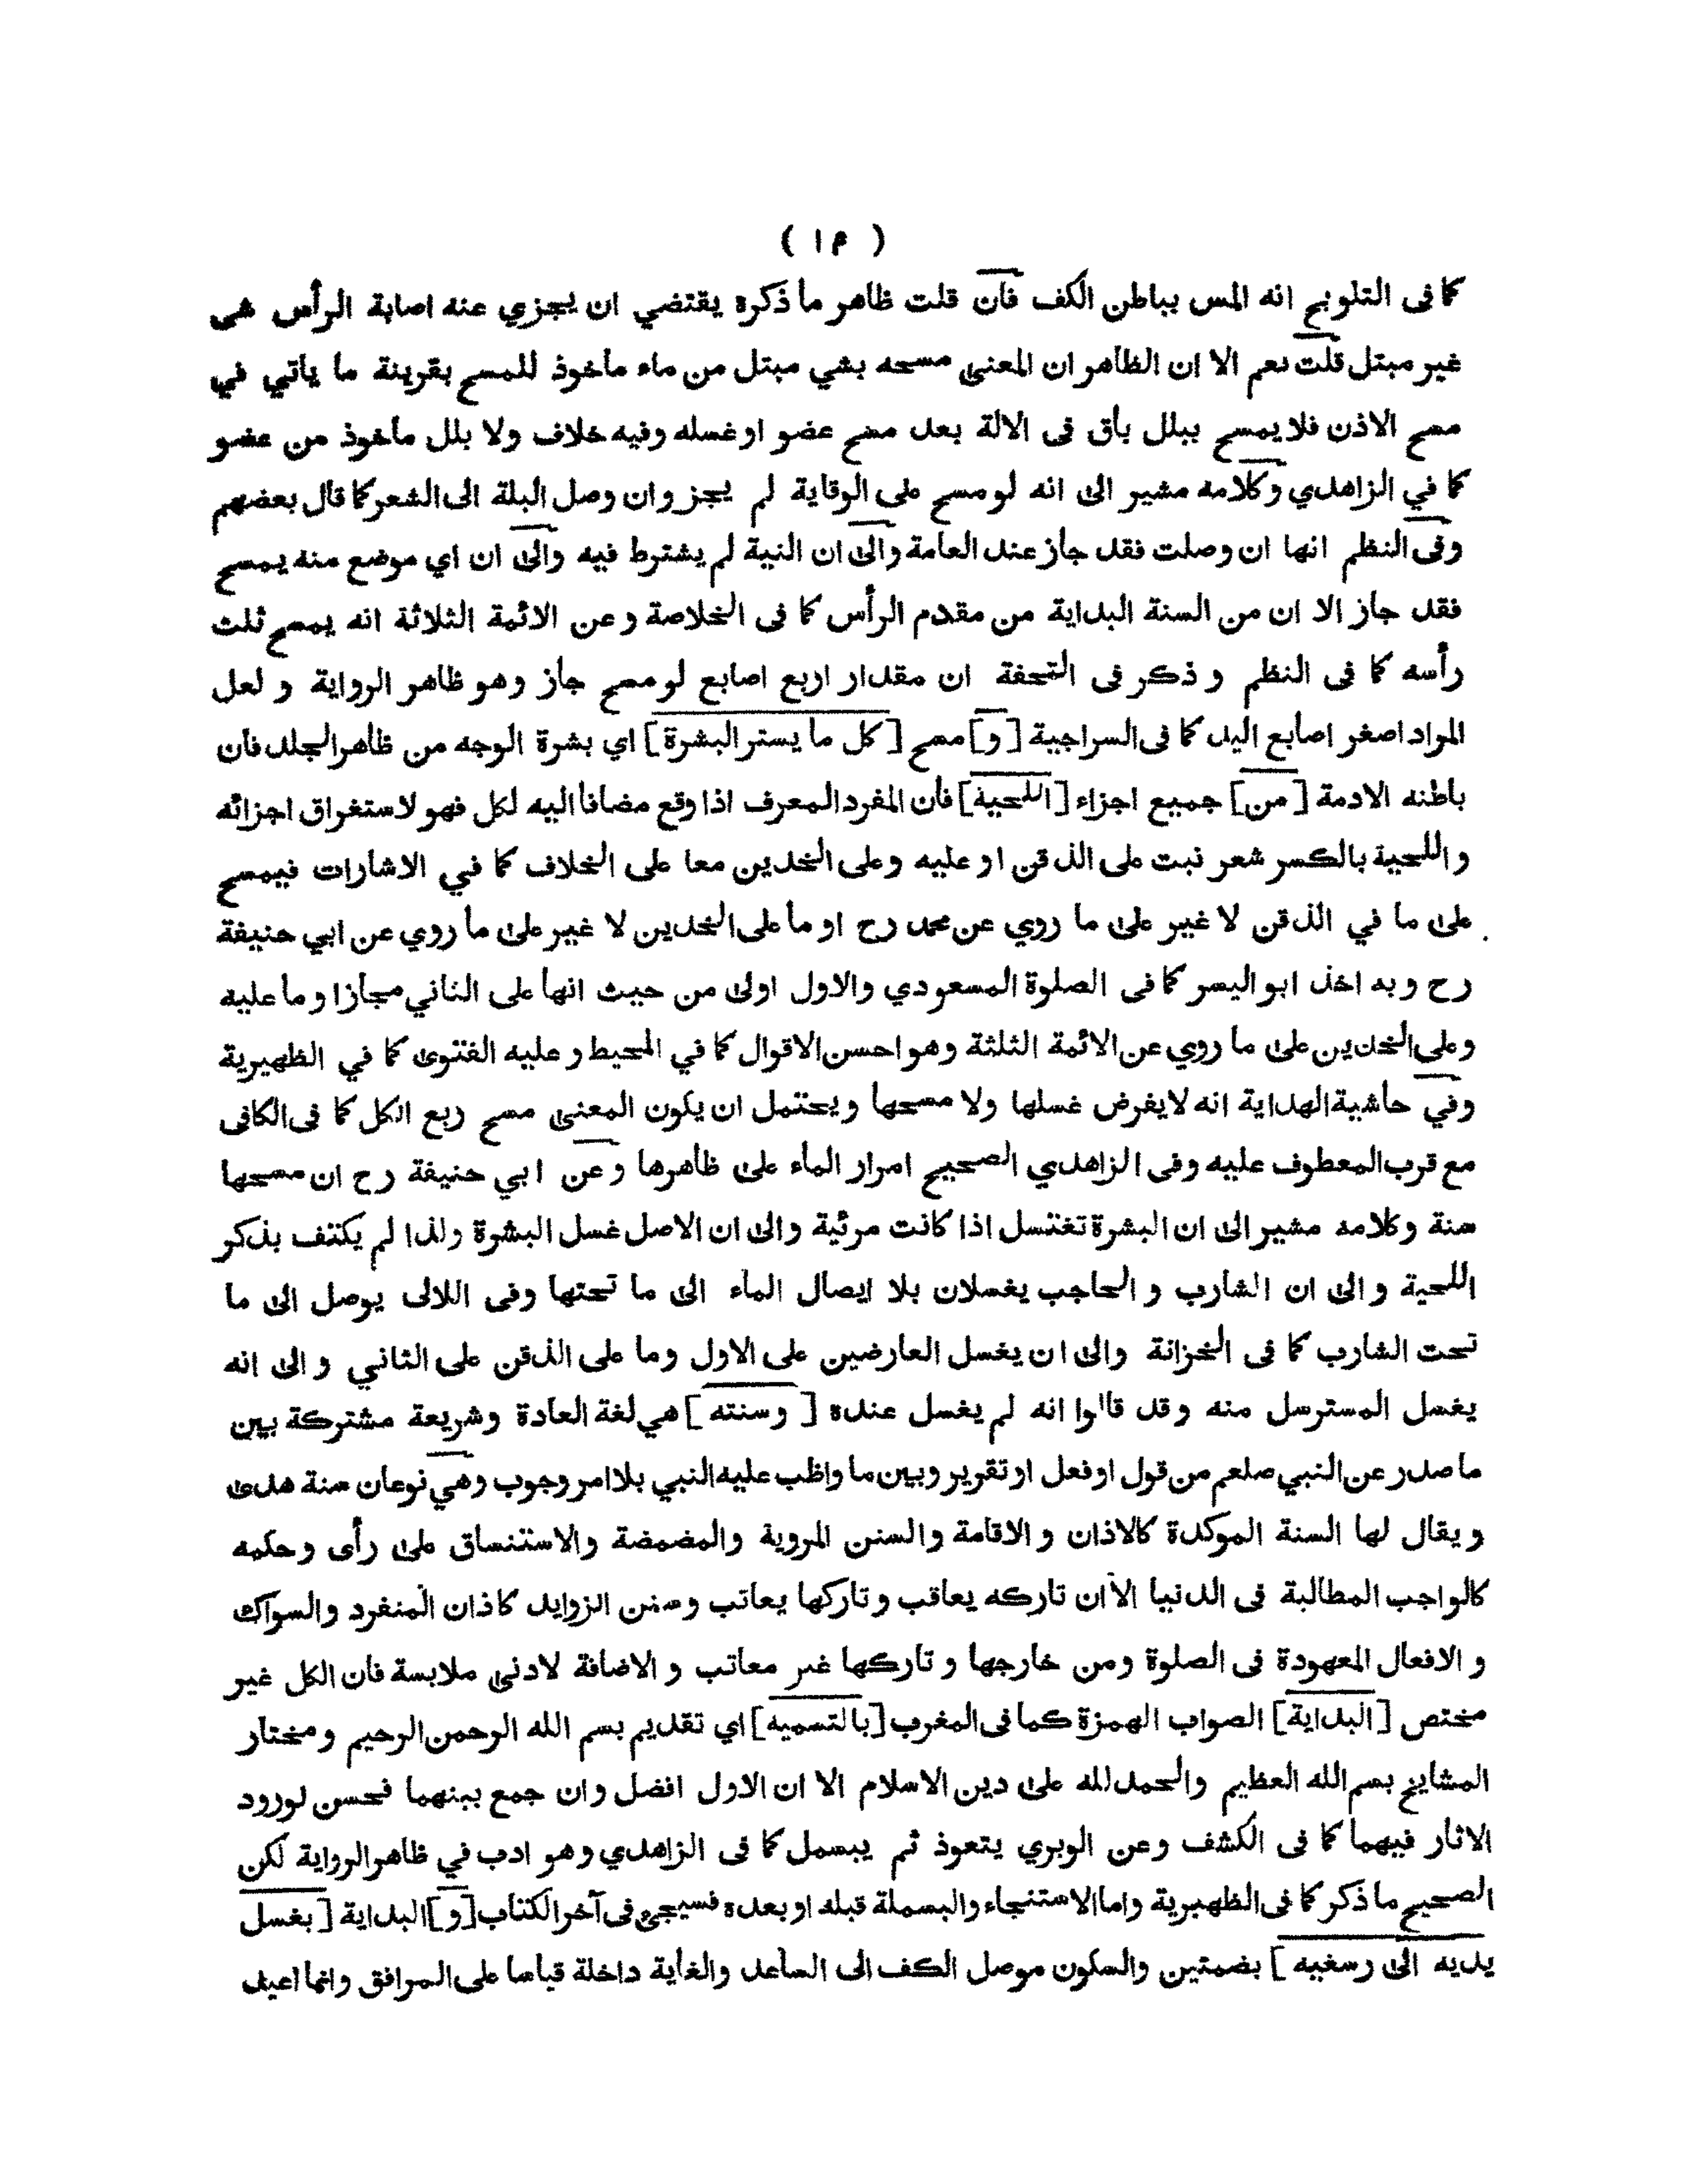 ( ١٤ )
كما فى التلويح انه المس بباطن الكف فان قلت ظاهر ما ذكره يقتضي ان يجزي عنه اصابة الرأس شى
غير مبتل قلت نعم الا ان الظاهر ان المعنى مسحه بشي مبتل من ماء مأخوذ للمسح بقرينة ما يأتي في
مسح الاذن فلا يمسح ببلل باق فى الالة بعد مسح عضو او غسله وفيه خلاف ولا بلل مأخوذ من عضو
كما في الزاهدي وكلامه مشير الى انه لو مسح على الوقاية لم يجز وان وصل البلة الى الشعر كما قال بعضهم
وفى النظم انها ان وصلت فقد جاز عند العامة والى ان النية لم يشترط فيه والى ان اي موضع منه يمسح
فقد جاز الا ان من السنة البداية من مقدم الرأس كما فى الخلاصة وعن الائمة الثلاثة انه يمسح ثلث
رأسه كما فى النظم و ذكر فى التحفة ان مقدار اربع اصابع لو مسح جاز وهو ظاهر الرواية و لعل
المراد اصغر اصابع اليد كما فى السراجية [و] مسح [كل ما يستر البشرة] اي بشرة الوجه من ظاهر الجلد فان
باطنه الادمة [من] جميع اجزاء [اللحية] فان المفرد المعرف اذا وقع مضافا اليه لكل فهو لاستغراق اجزائه
و اللحية بالكسر شعر نبت على الذقن او عليه وعلى الخدين معا على الخلاف كما في الاشارات فيمسح
على ما في الذقن لا غير على ما روي عن محمد رح او ما على الخدين لا غير على ما روي عن ابي حنيفة
رح و به اخذ ابو اليسر كما فى الصلوة المسعودي والاول اولى من حيث انها على الثاني مجازا وما عليه
وعلى الخدين على ما روي عن الائمة الثلثة وهو احسن الاقوال كما في المحيط و عليه الفتوى كما في الظهيرية
وفي حاشية الهداية انه لا يفرض غسلها ولا مسحها ويحتمل ان يكون المعنى مسح ربع الكل كما فى الكافى
مع قرب المعطوف عليه وفى الزاهدي الصحيح امرار الماء على ظاهرها وعن ابي حنيفة رح ان مسحها
سنة وكلامه مشير الى ان البشرة تغتسل اذا كانت مرئية والى ان الاصل غسل البشرة ولذا لم يكتف بذكر
اللحية و الى ان الشارب و الحاجب يغسلان بلا ايصال الماء الى ما تحتها وفى اللالى يوصل الى ما
تحت الشارب كما فى الخزانة والى ان يغسل العارضين على الاول وما على الذقن على الثاني و الى انه
يغسل المسترسل منه وقد قالوا انه لم يغسل عنده [ وسنته ] هي لغة العادة وشريعة مشتركة بين
ما صدر عن النبي صلعم من قول او فعل او تقرير وبين ما واظب عليه النبي بلا امر وجوب وهي نوعان سنة هدى
و يقال لها السنة الموكدة كالاذان و الاقامة والسنن المروية والمضمضة والاستنساق على رأى وحكمه
كالواجب المطالبة فى الدنيا الاان تاركه يعاقب و تاركها يعاتب وسنن الزوايد كاذان المنفرد والسواك
و الافعال المعهودة فى الصلوة ومن خارجها و تاركها غير معاتب و الاضافة لادنى ملابسة فان الكل غير
مختص [البداية] الصواب الهمزة كما فى المغرب [بالتسميه] اي تقديم بسم الله الرحمن الرحيم ومختار
المشايخ بسم الله العظيم والحمد لله على دين الاسلام الا ان الاول افضل وان جمع بينهما فحسن لورود
الاثار فيهما كما فى الكشف وعن الوبري يتعوذ ثم يبسمل كما فى الزاهدي وهو ادب في ظاهر الرواية لكن
الصحيح ما ذكر كما فى الظهيرية واما الاستنجاء والبسملة قبله او بعده فسيجئ فى آخر الكتاب [و] البداية [بغسل
يديه الى رسغيه ] بضمتين والسكون موصل الكف الى الساعد والغاية داخلة قياسا على المرافق وانما اعيد